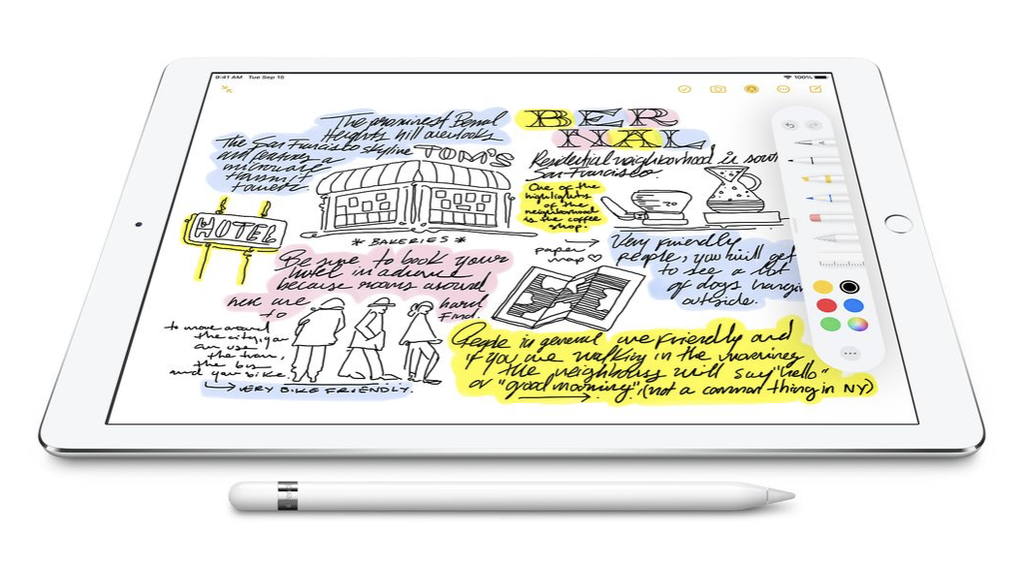 9:41 AM Tue Sep 15
100%
The prominent Bernal
Heights hill overlooks
the San Francisco skyline
and features a
microwave
transmit
tower
TOM'S
* BAKERIES *
HOTEL
BERNAL
Residential neighborhood is sout
San Francisco.
One of the
highlights
of the
neighborhood
is the coffee
shop.
paper
map
Very friendly
people, you will get
to see a lot
of dogs hangin
outside.
Be sure to book your
hotel in advance
because rooms around
here are hard
to find.
to move around
the city, you
can use
the train,
the bus
and your bike.
VERY BIKE FRIENDLY.
People in general are friendly and
if you are walking in the morning
the neighbors will say "hello"
or "good morning". (not a common thing in NY)